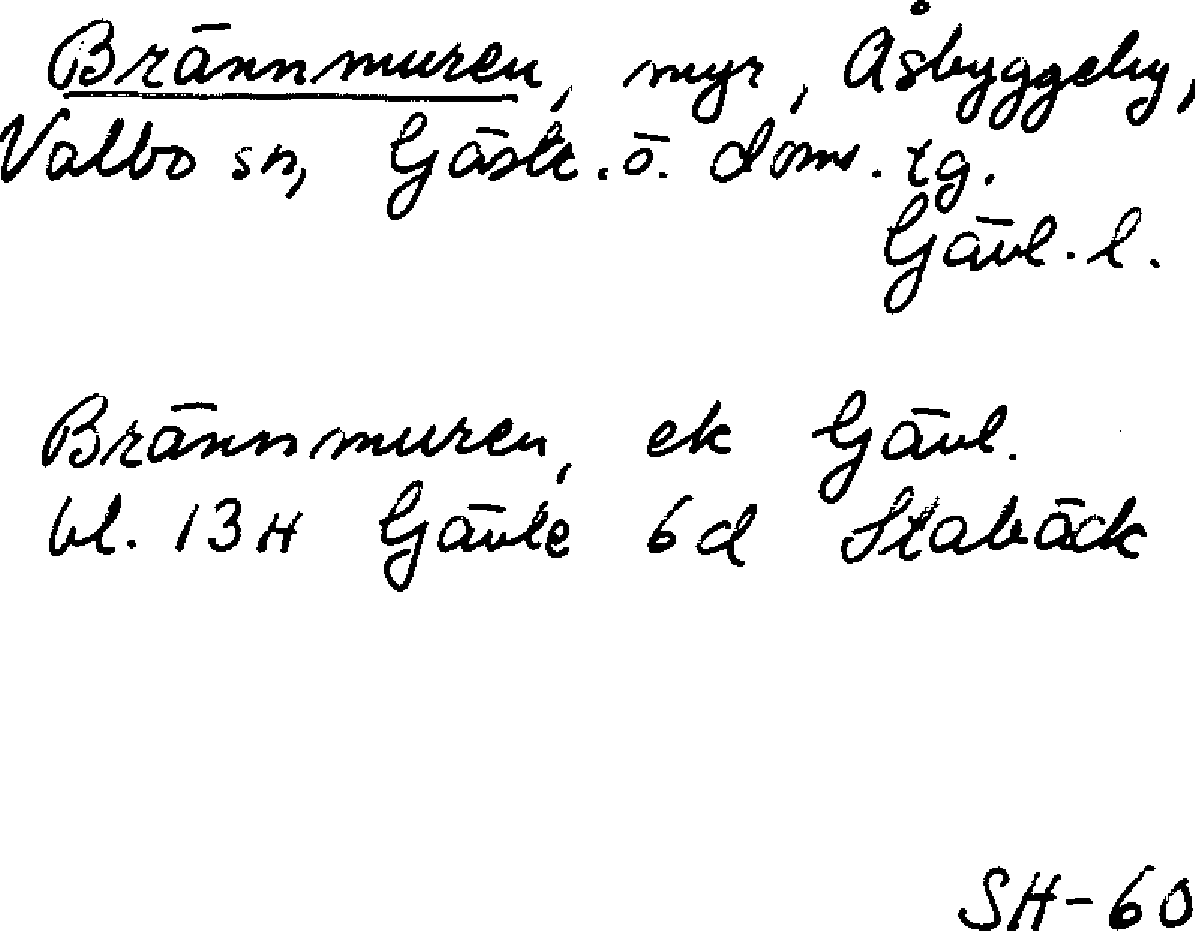 Brännmuren, myr, Åsbyggeby,
Valbo sn, Gästr. ö. doms. tg.
Gävl. l.
Brännmuren, ek Gävl.
bl. 13H Gävle 6d Stabäck
SH-60